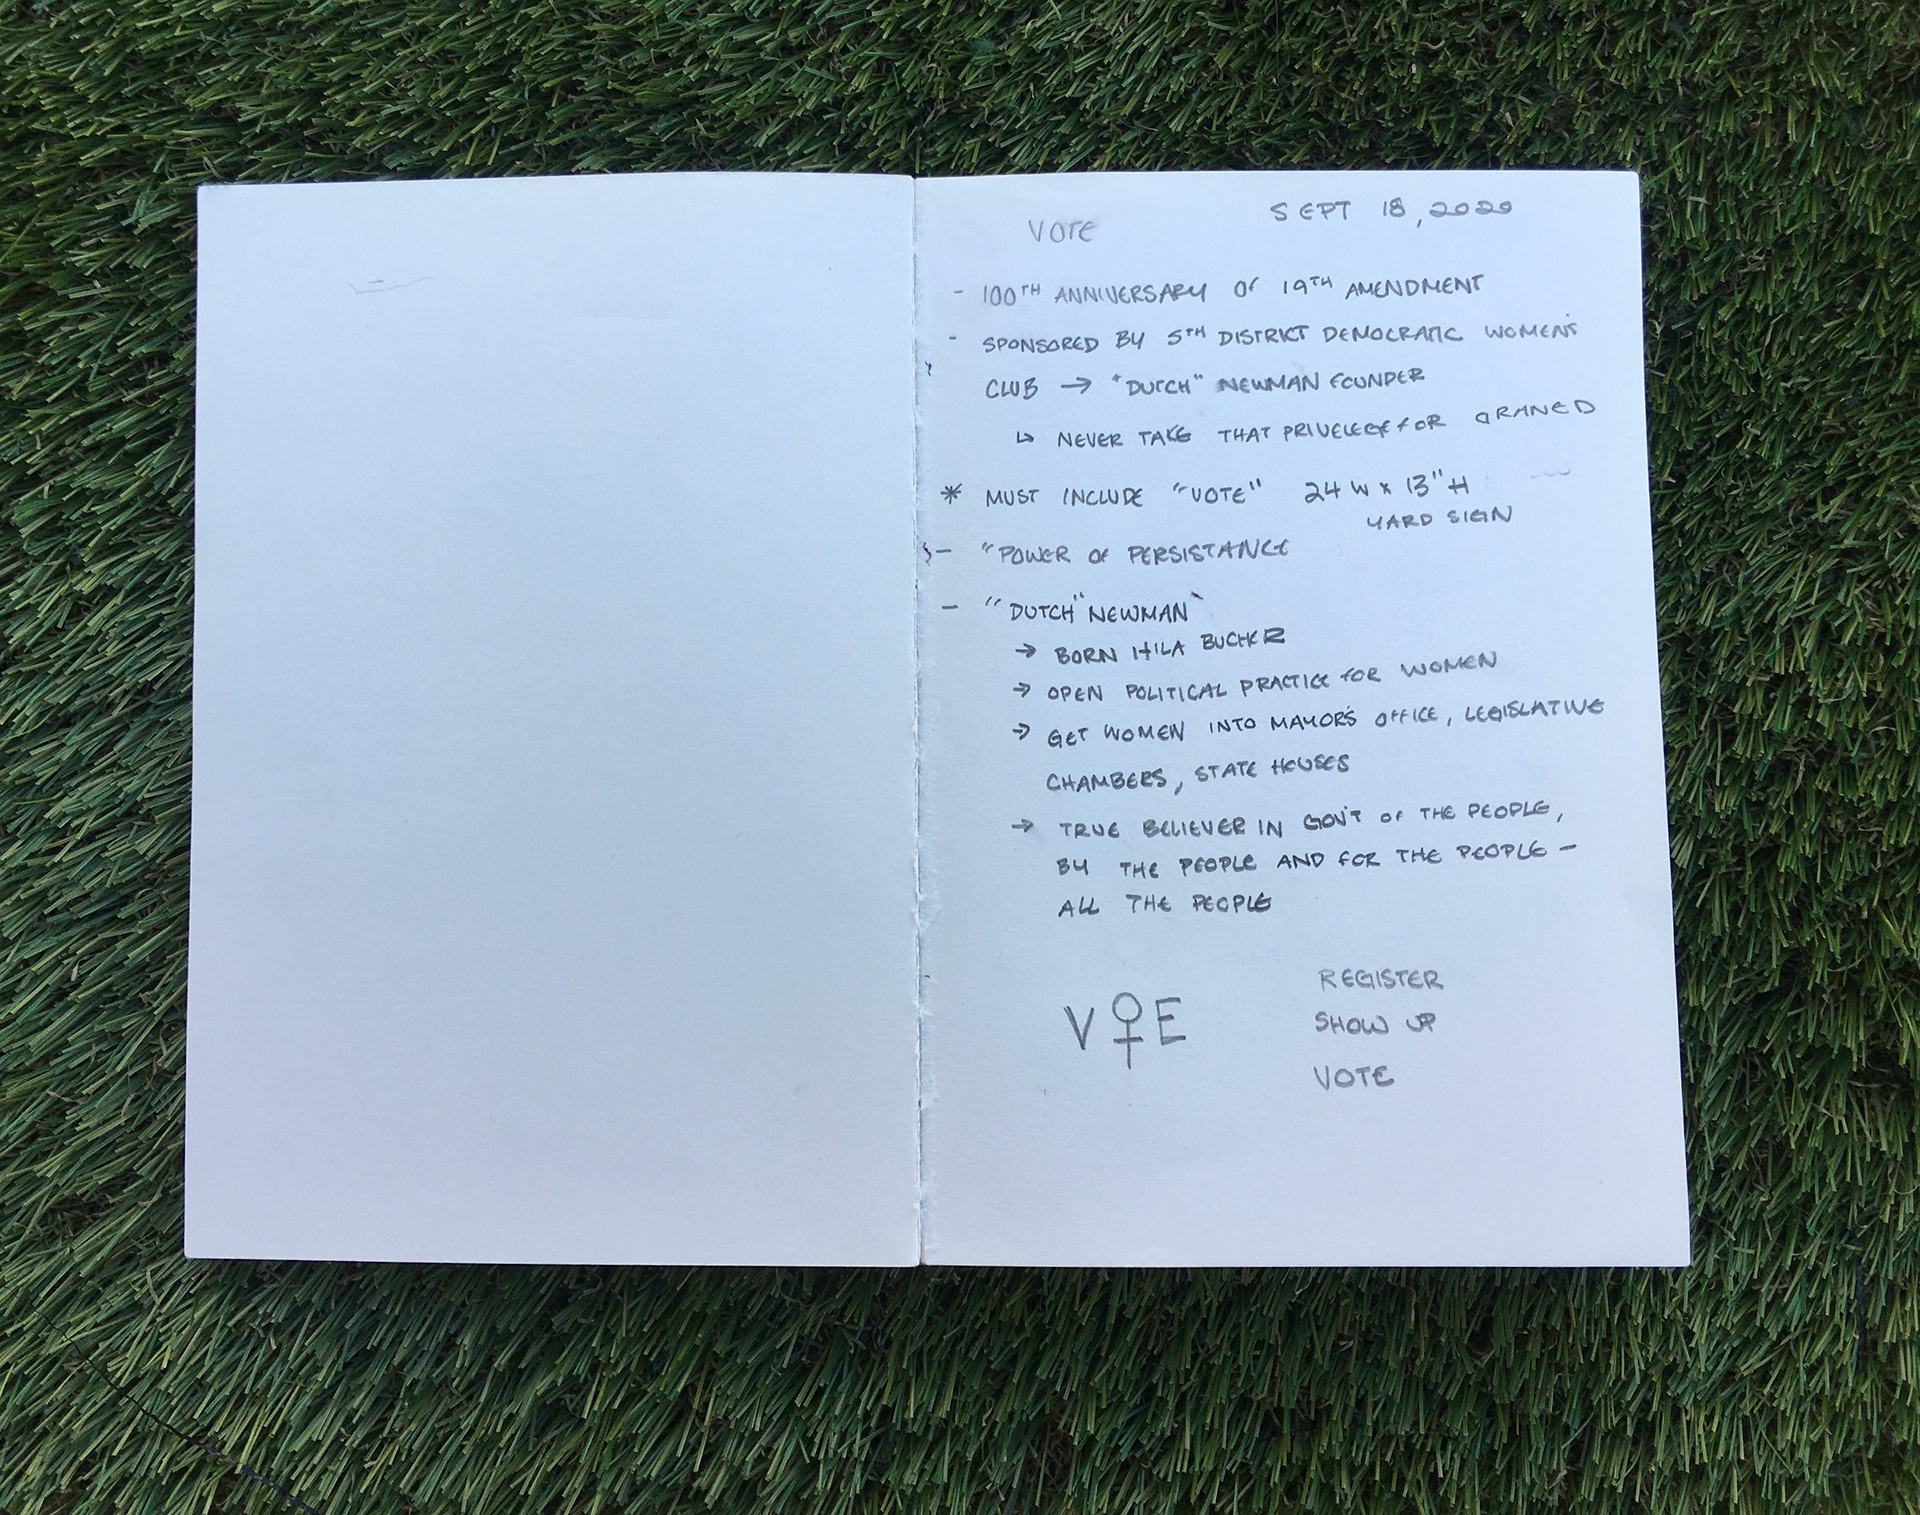 VOTE
SEPT 18, 2020
- 100TH ANNIVERSARY OF 19TH AMENDMENT
- SPONSORED BY 5TH DISTRICT DEMOCRATIC WOMEN'S
CLUB → "DUTCH" NEWMAN FOUNDER
↳ NEVER TAKE THAT PRIVELEGE FOR GRANED
* MUST INCLUDE "VOTE" 24 W x 13" H
YARD SIGN
- "POWER OF PERSISTANCE
- "DUTCH" NEWMAN
→ BORN HILA BUCHER
→ OPEN POLITICAL PRACTICE FOR WOMEN
→ GET WOMEN INTO MAYOR'S OFFICE, LEGISLATIVE
CHAMBERS, STATE HOUSES
→ TRUE BELIEVER IN GOV'T OF THE PEOPLE,
BY THE PEOPLE AND FOR THE PEOPLE -
ALL THE PEOPLE
V♀E
REGISTER
SHOW UP
VOTE